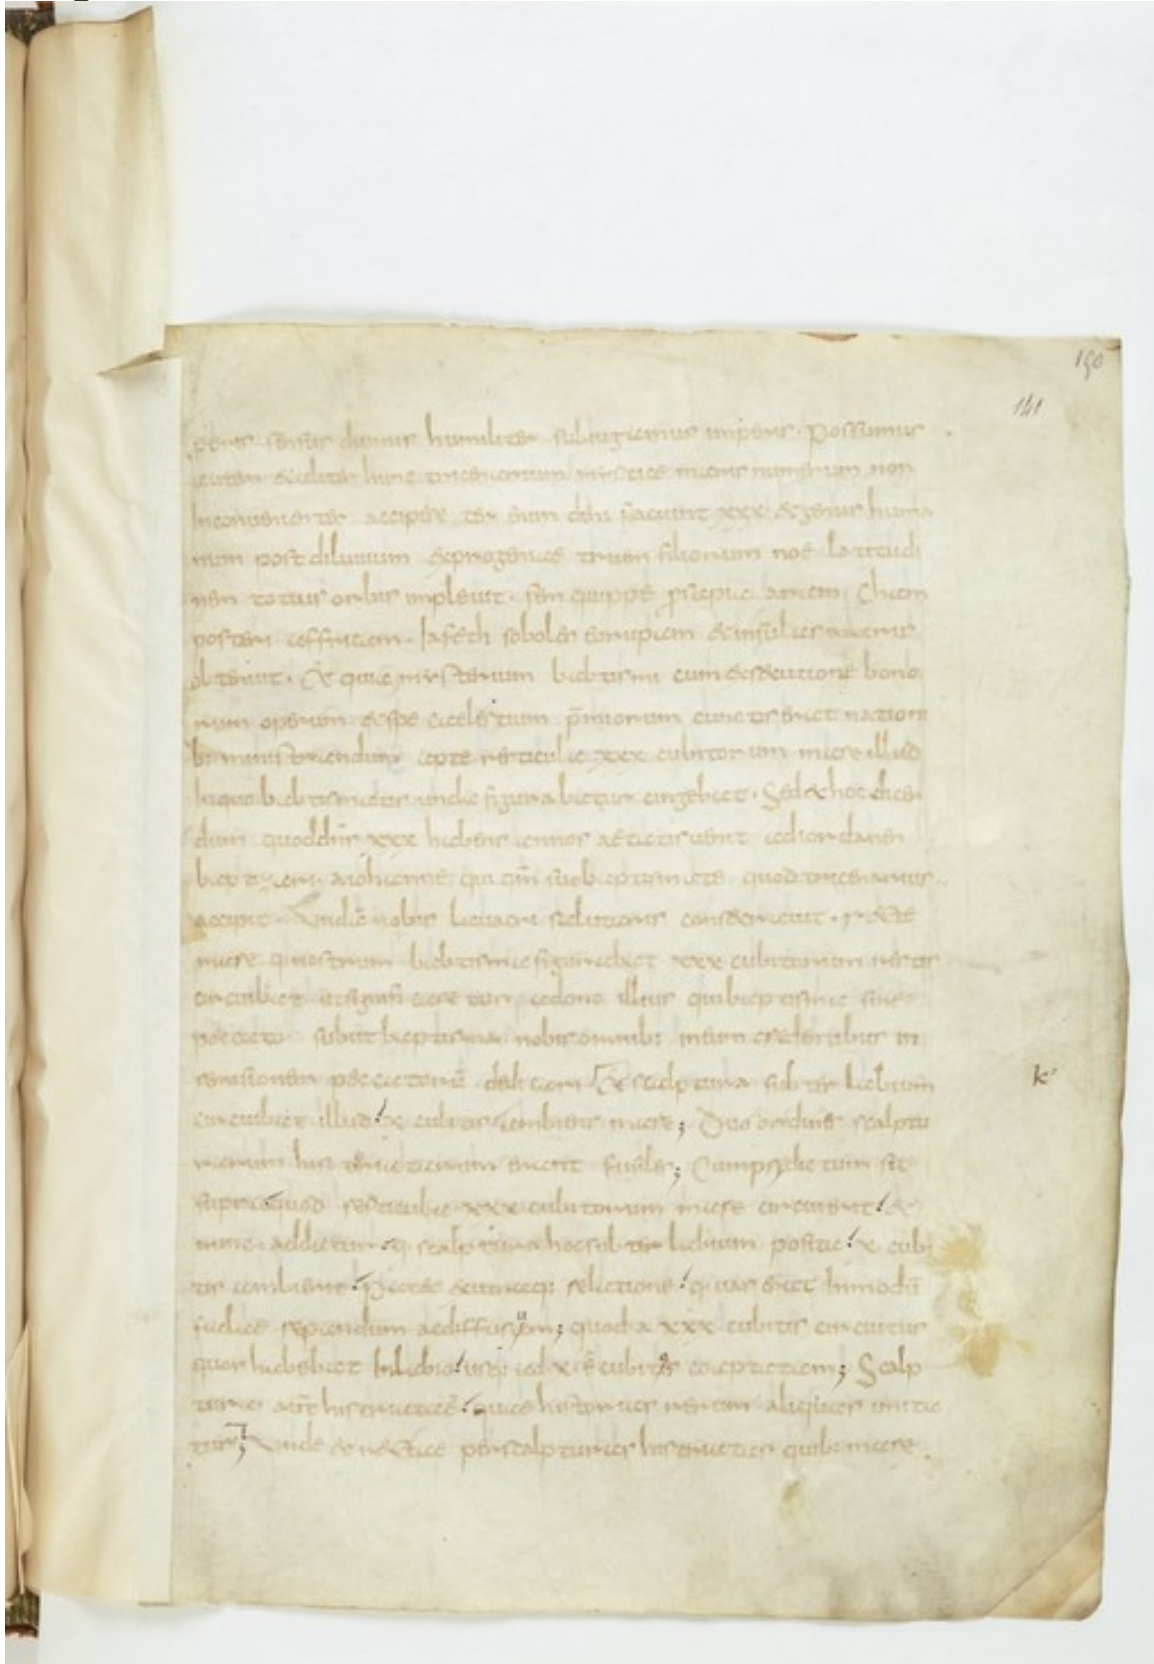 190
141
poris sensus diuinis humiliter subiugamus imperiis. Possumus
autem & aliter hunc tricenarium mystice maris numerum non
inconuenienter accipere ter enim deni faciunt xxx. & genus huma
num post diluuium exprogenie trium filiorum noe latitudi
nem totius orbis impleuit. sem quippe psapia asiam. Cham
posteri affricam. Iafeth soboles europam & insulas maris
obtenuit. Et quia mysterium babtismi cum exsecutione bono
rum operum & spe caelestium p̄miorum cunctis erat nationi
bus ministrandum apte resticula xxx cubitorum mare illud
inquo babtismatis unda figurabatur cingebat. Sed & hoc dicen
dum quod dn̄s xxx habens annos aetatis uenit ad iordanen
baptizari aiohanne qui
accipit. Unde nobis lauacri salutaris consecrauit. recte
mare q nostrum babtisma figurabat xxx cubitorum restis
circuibat ut significaretur adono illius qui baptisma sine
peccato subiit baptisma nobis omnibus ineum credentibus in
remisionem peccatorū dedicari Et scalptura subter labium
circuibat illud x cubitis ambiens mare; Duo ordines scalptu
rarum histriatarum erant fusiles; Cum pdictum sit
supra quod resticula xxx cubitorum mare circuierit &
nunc additum q scalptura haec subter labium posita x cubi
tis ambierit Patet utriusq; relatione quia erat inmodū
fialae repandum ac diffusum; quod a xxx cubitis circuitus
quos habebat inlabio usq; ad x se cubitos coaptatam; Scalp
turae aūt histriatae quae historias rerum aliquas imita
tur; Unde & recte per scalpturas histriatas quibus mare
k